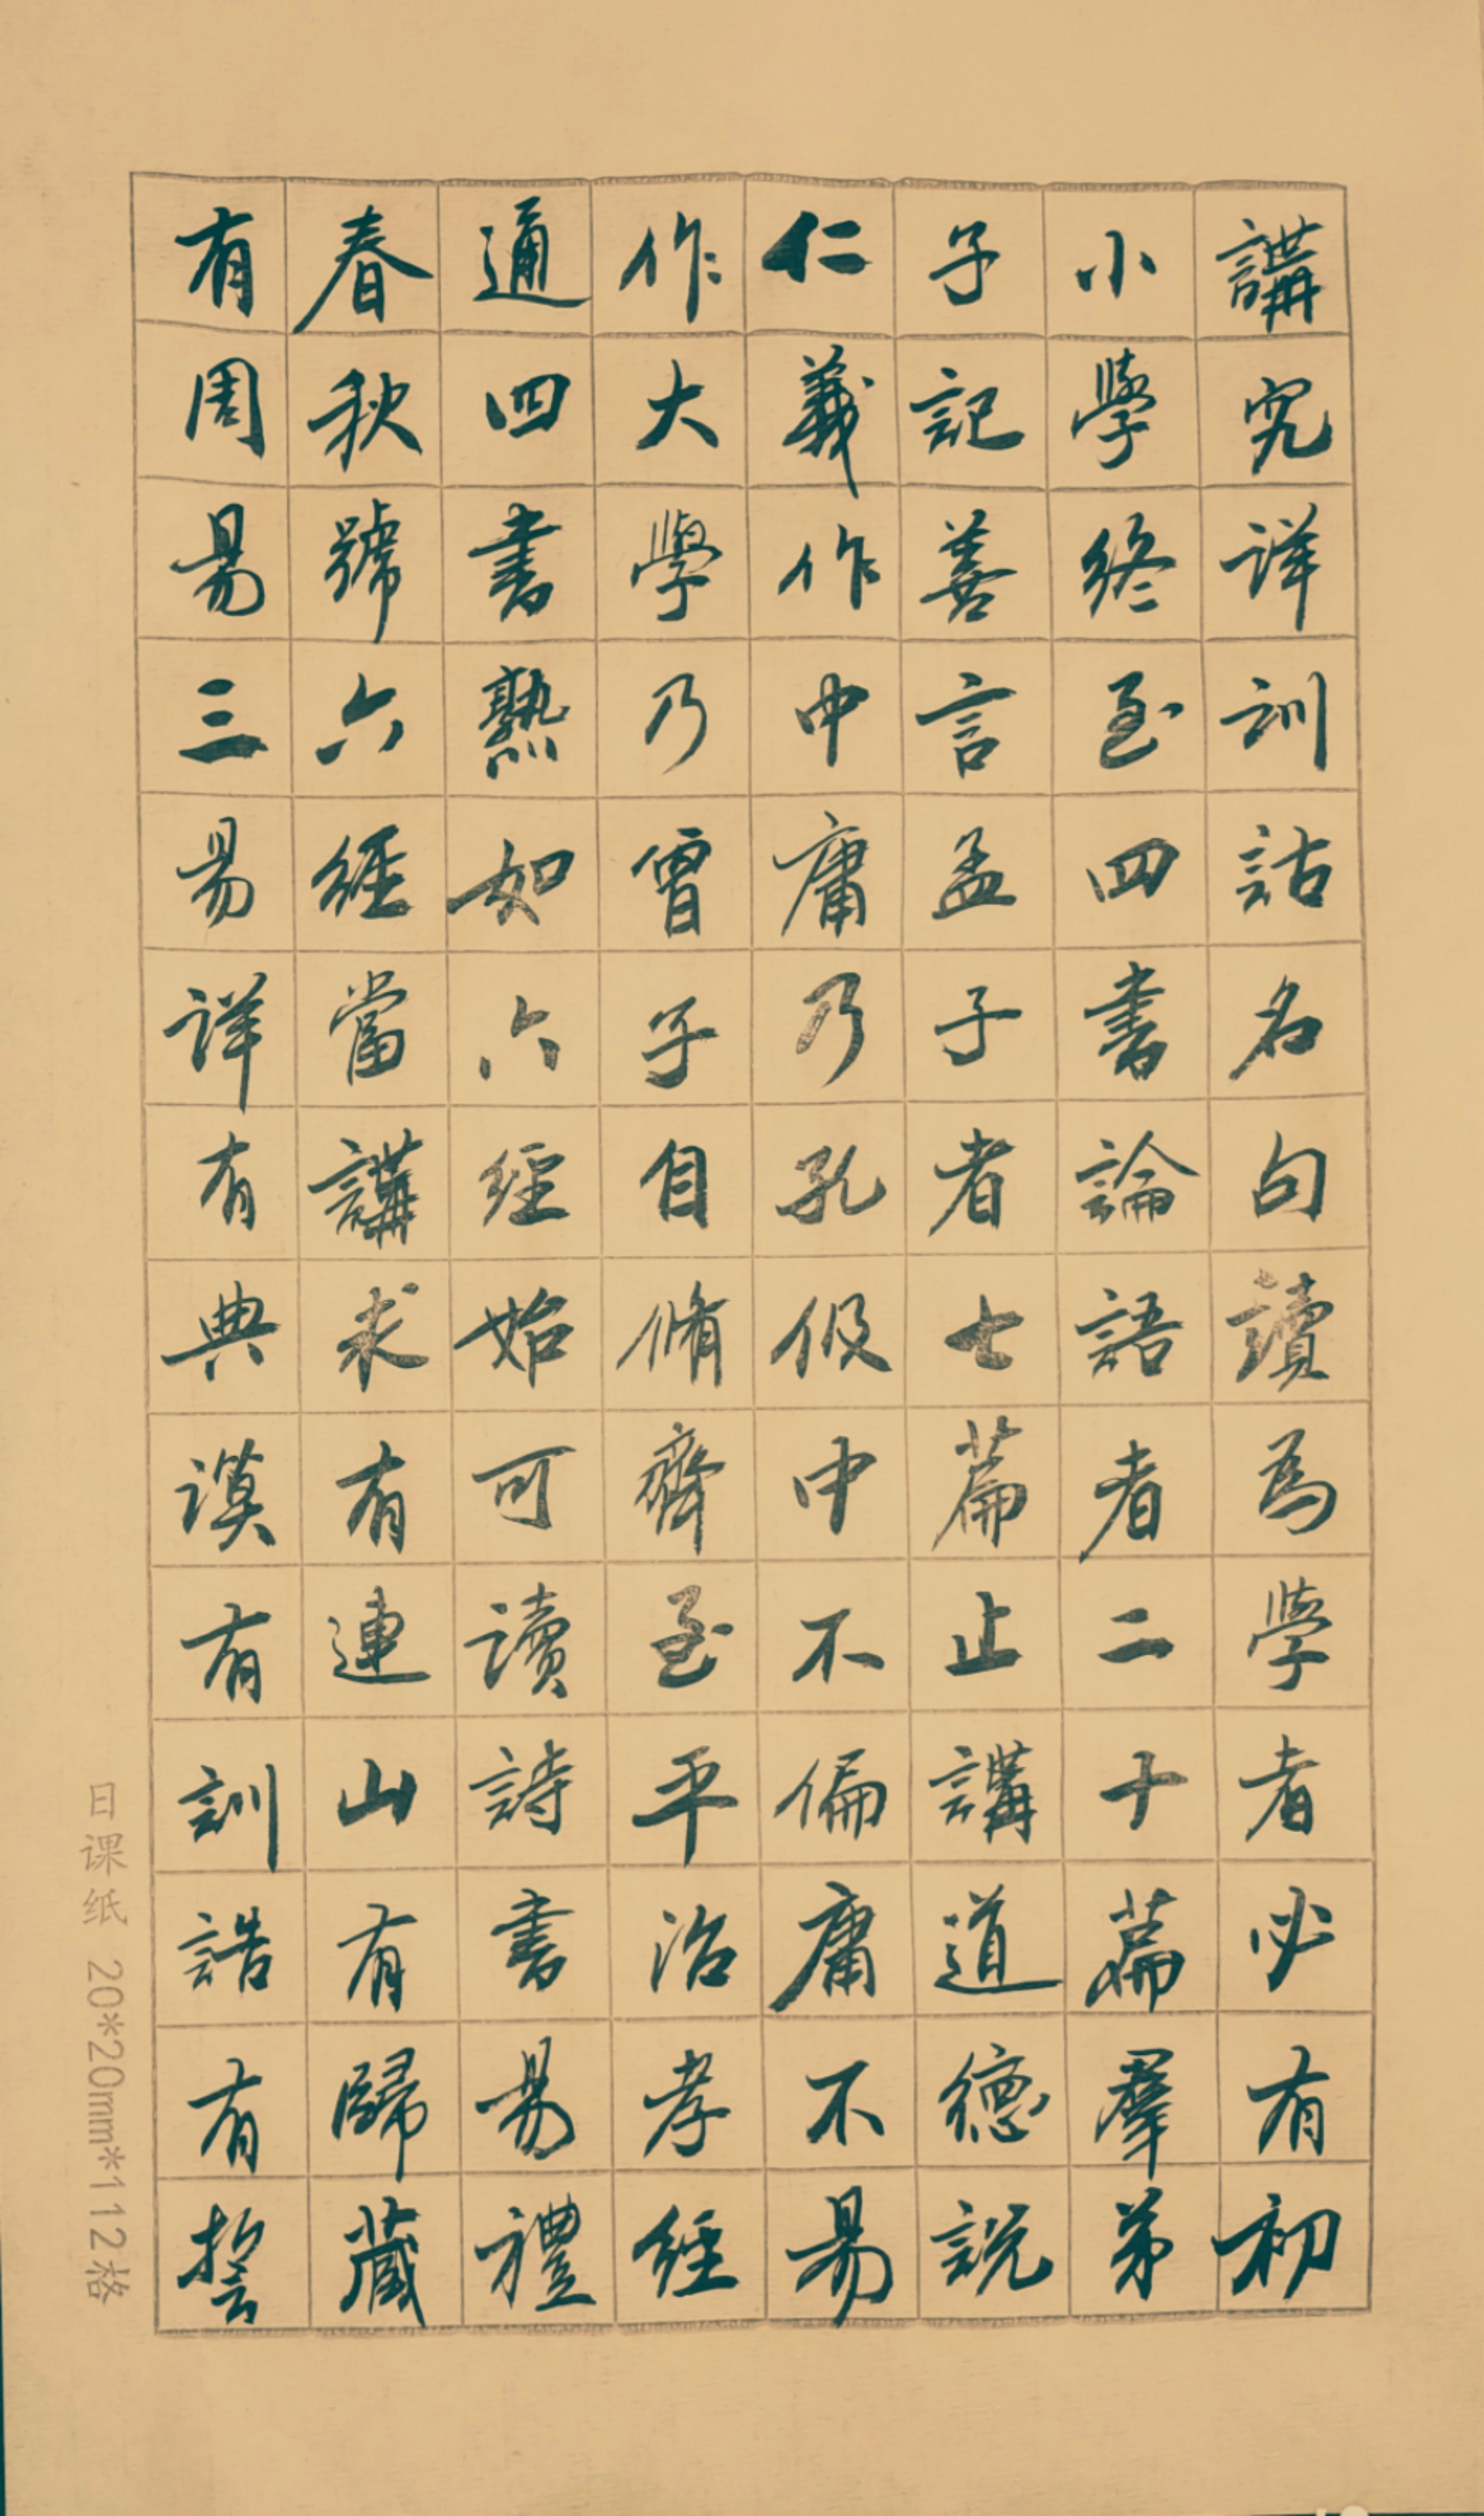 講究詳訓詁名句讀為學者必有初
小學終至四書論語者二十篇羣弟
子記善言孟子者七篇止講道德説
仁義作中庸乃孔伋中不偏庸不易
作大學乃曾子自脩齊至平治孝經
通四書熟如六經始可讀詩書易禮
春秋號六經當講求有連山有歸藏
有周易三易詳有典謨有訓誥有誓
日课纸 20*20mm*112格